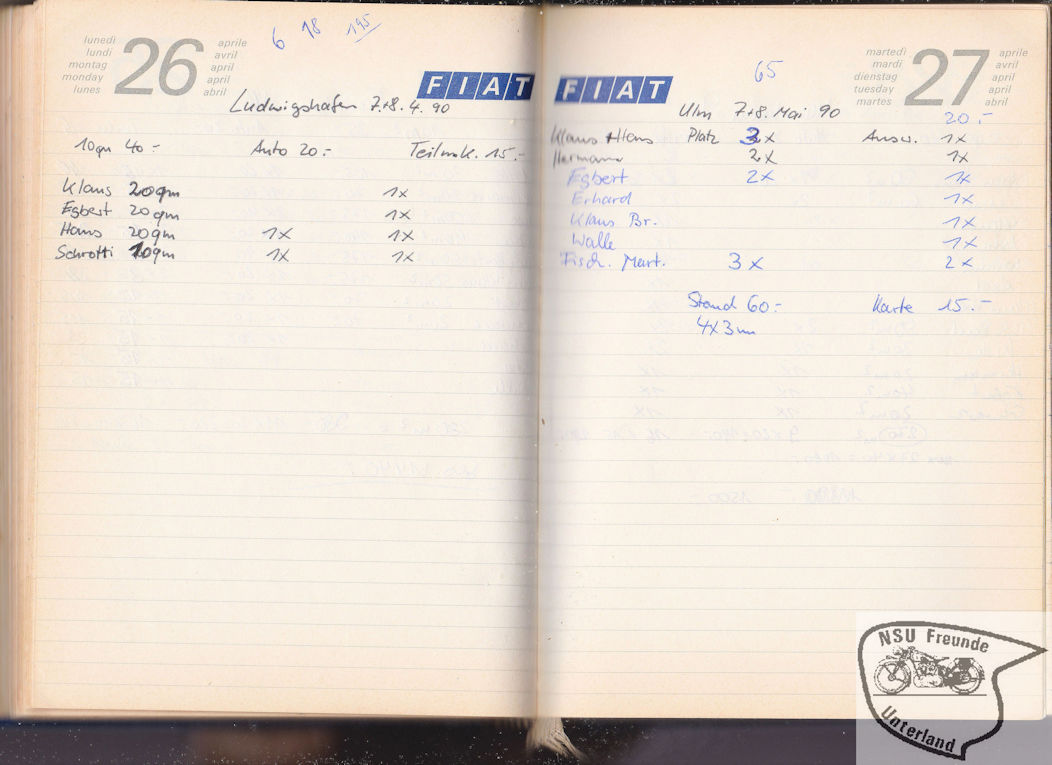 6 18 195
lunedì
lundi
montag
monday
lunes
26
aprile
avril
april
april
abril
FIAT
Ludwigshafen 7.+8. 4. 90
10qm 40.- Auto 20.- Teilnk. 15.-
Klaus 20qm 1x
Egbert 20qm 1x
Hans 20qm 1x 1x
Schrotti 10qm 1x 1x
martedì
mardi
dienstag
tuesday
martes
27
aprile
avril
april
april
abril
65
FIAT
Ulm 7+8. Mai 90
20.-
Klaus + Hans Platz 3x Ausw. 1x
Hermann 2x 1x
Egbert 2x 1x
Erhard 1x
Klaus Br. 1x
Walle 1x
Fisch. Mart. 3x 2x
Stand 60.- Karte 15.-
4x3m
NSU Freunde
Unterland